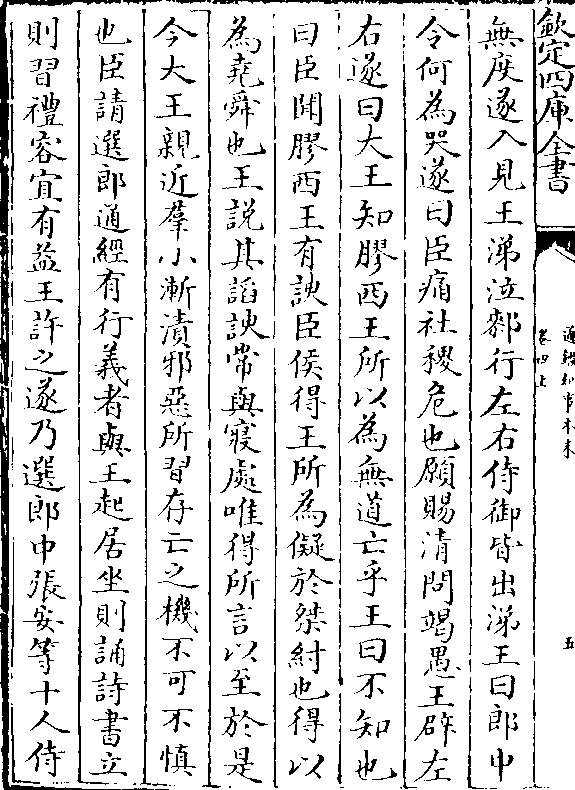 欽定四庫全書
通鑑紀事本末
卷四上
五
無度遂入見王涕泣䣛行左右侍御皆出涕王曰郎中
令何為哭遂曰臣痛社稷危也願賜清閒竭愚王辟左
右遂曰大王知膠西王所以為無道亡乎王曰不知也
曰臣聞膠西王有諛臣侯得王所為儗於桀紂也得以
為堯舜也王說其謟諛常與寢處唯得所言以至於是
今大王親近羣小漸漬邪惡所習存亡之機不可不慎
也臣請選郎通經有行義者與王起居坐則誦詩書立
則習禮容宜有益王許之遂乃選郎中張安等十人侍